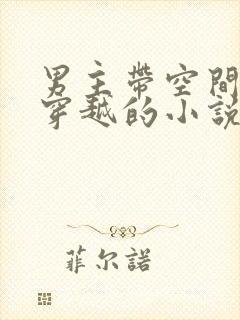 男主帶空間
穿越的小說
菲尔諾